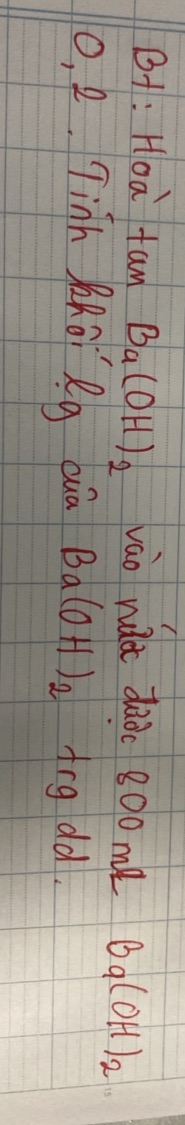 Bt: Hoà tan Ba(OH)2 vào nước được 800 ml Ba(OH)2
0,2. Tính khối lg của Ba(OH)2 trg dd.